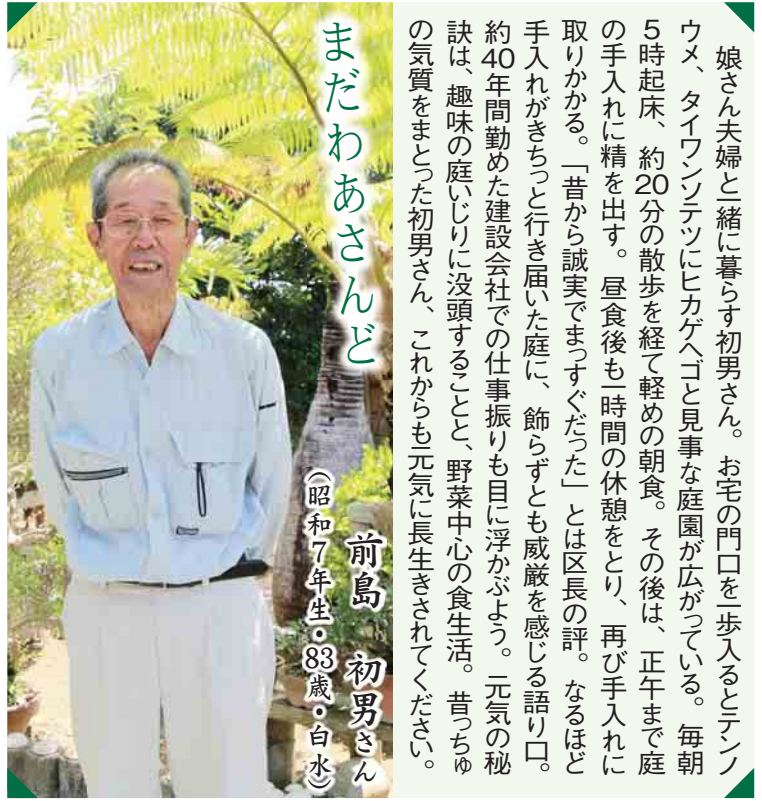 娘さん夫婦と一緒に暮らす初男さん。お宅の門口を一歩入るとテンノ
ウメ、タイワンソテツにヒカゲヘゴと見事な庭園が広がっている。毎朝
5時起床、約20分の散歩を経て軽めの朝食。その後は、正午まで庭
の手入れに精を出す。昼食後も一時間の休憩をとり、再び手入れに
取りかかる。「昔から誠実でまっすぐだった」とは区長の評。なるほど
手入れがきちっと行き届いた庭に、飾らずとも威厳を感じる語り口。
約40年間勤めた建設会社での仕事振りも目に浮かぶよう。元気の秘
訣は、趣味の庭いじりに没頭することと、野菜中心の食生活。昔っちゅ
の気質をまとった初男さん、これからも元気に長生きされてください。
まだわあさんど
前島 初男さん
(昭和7年生・83歳・白水)